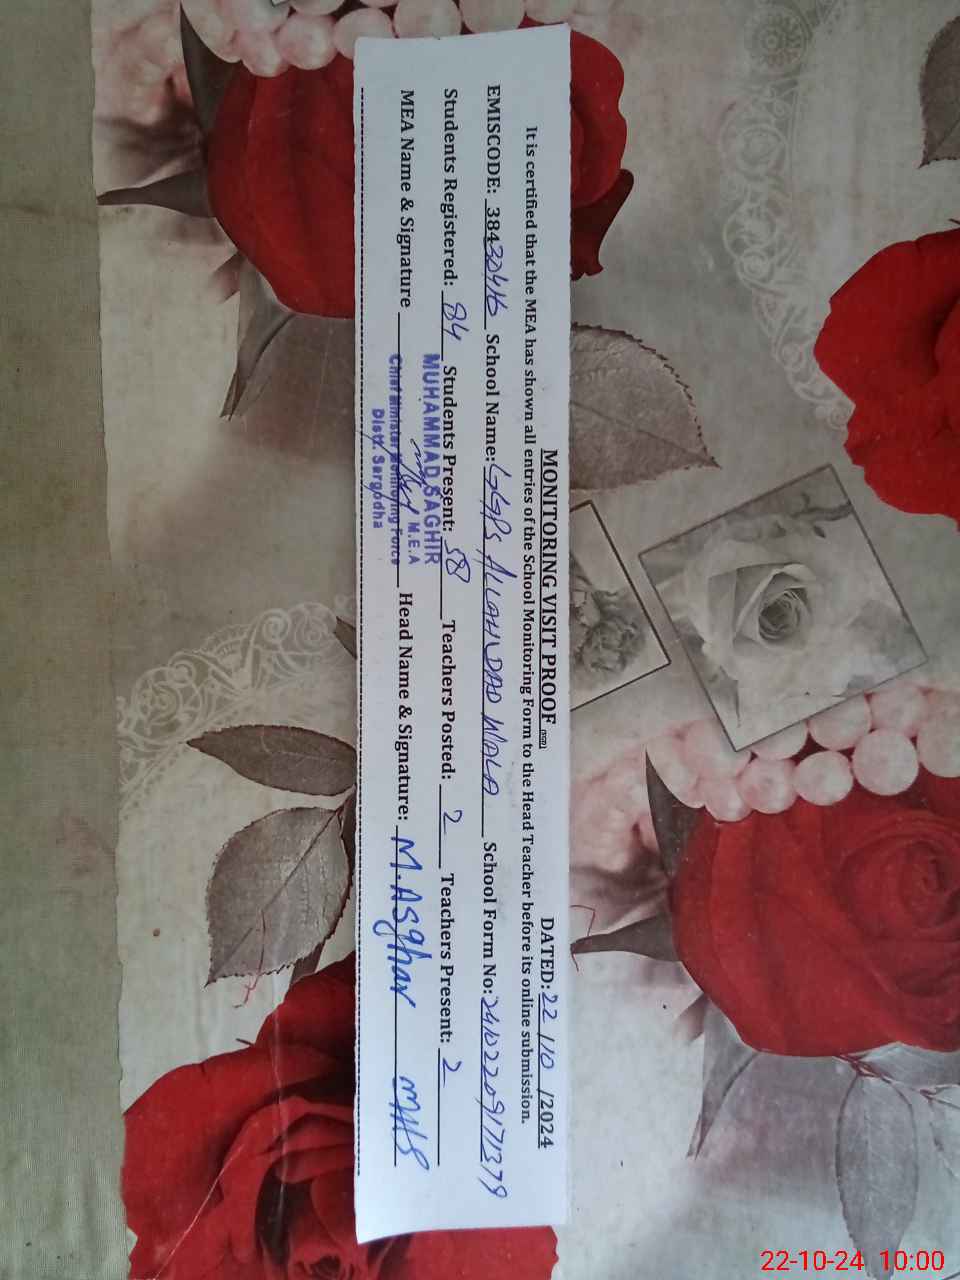 MONITORING VISIT PROOF (SSD) DATED: 22/10/2024
It is certified that the MEA has shown all entries of the School Monitoring Form to the Head Teacher before its online submission.
EMISCODE: 38430416 School Name: GGPS ALLAH DAD WALA School Form No: 24102209171379
Students Registered: 84 Students Present: 58 Teachers Posted: 2 Teachers Present: 2
MUHAMMAD SAGHIR
MEA Name & Signature M.E.A Head Name & Signature: M. Asghar
Chief Minister Monitoring Force
Distt. Sargodha
22-10-24 10:00